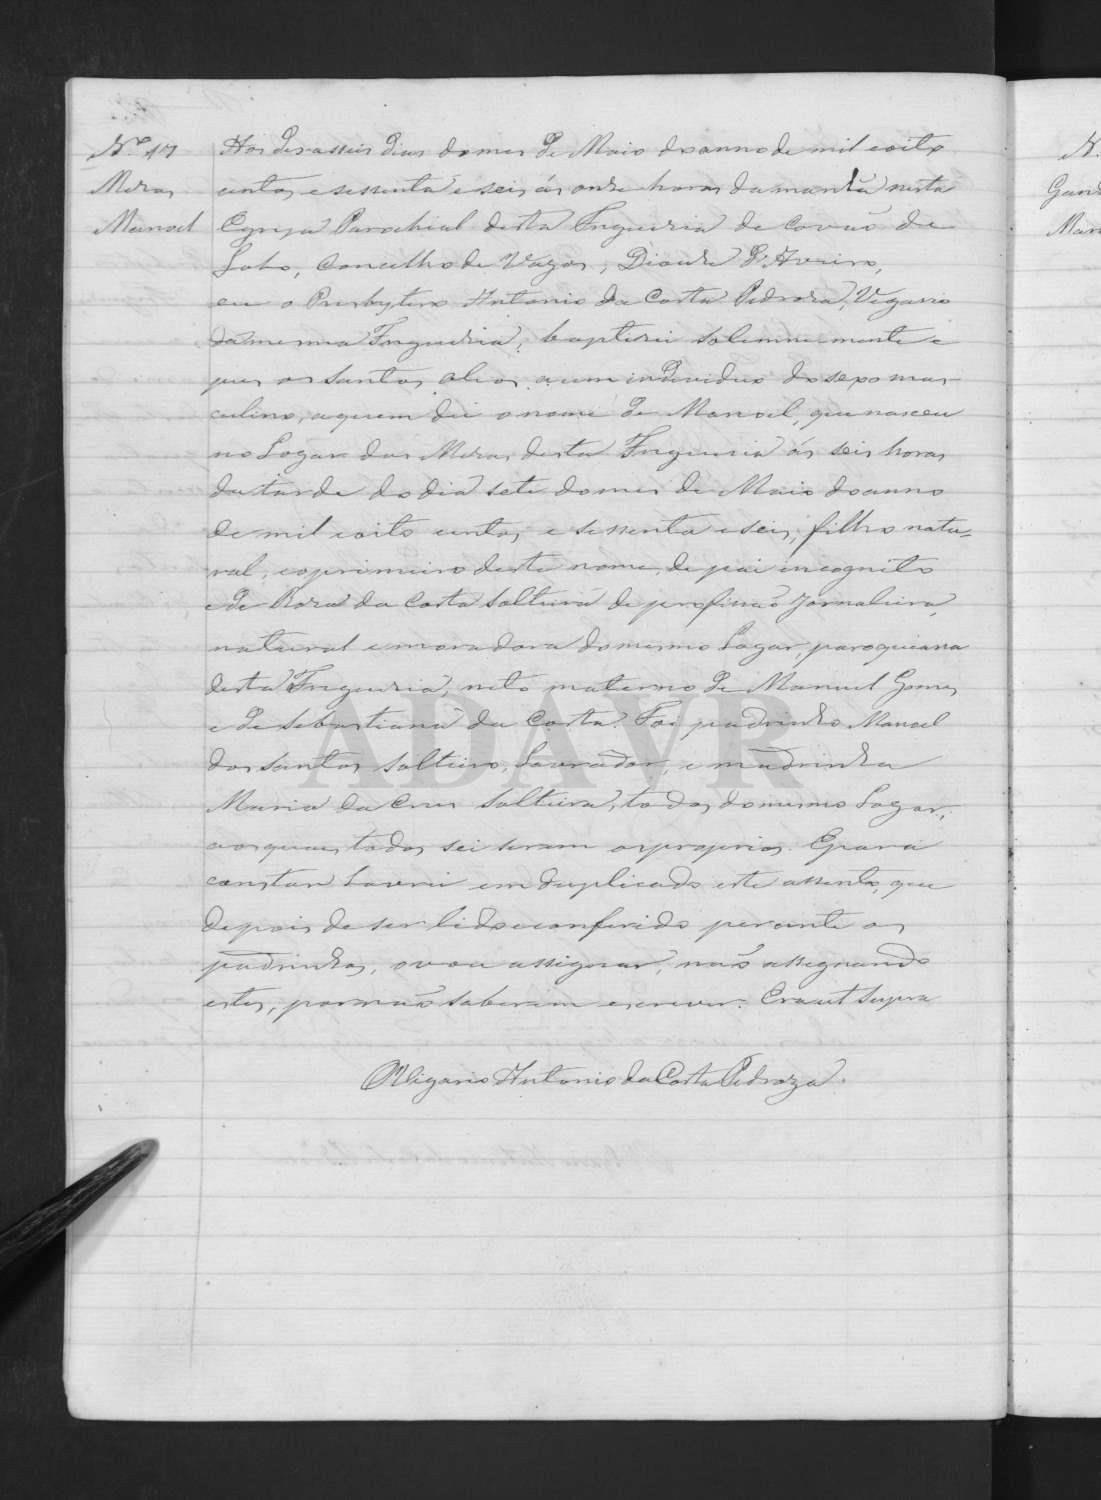 Nº 17
Mezas
Manoel
Aos desasseis dias do mes de Maio do anno de mil e oito
centos e sessenta e seis ás onze horas da manhã nesta
Egreja Parochial desta Freguezia de Covão do
Lobo, Concelho de Vagos, Diocese d'Aveiro,
eu o Presbytero Antonio da Costa Pedroza, Vigario
da mesma Freguezia, baptizei solemnemente e
puz os santos oleos a um individuo do sexo mas-
culino, a quem dei o nome de Manoel, que nasceu
no Logar das Mezas desta Freguezia ás seis horas
da tarde do dia sete do mes de Maio do anno
de mil e oito centos e sessenta e seis, filho natu-
ral, e o primeiro deste nome, de pai incognito
e de Roza da Costa solteira de profissão Jornaleira,
natural e moradora do mesmo Logar, paroquiana
desta Freguezia, neto materno de Manuel Gomes
e de Sebastiana da Costa. Foi padrinho Manoel
dos Santos solteiro, Lavrador, e madrinha
Maria da Cruz solteira, todos do mesmo Logar,
aos quaes todos sei serem os proprios. E para
constar lavrei em duplicado este assento, que
depois de ser lido e conferido perante os
padrinhos, o vou assignar, não assignando
estes, por não saberem escrever. Era ut supra
O Vigario Antonio da Costa Pedroza.
N.
Gand
Man
ADAVR